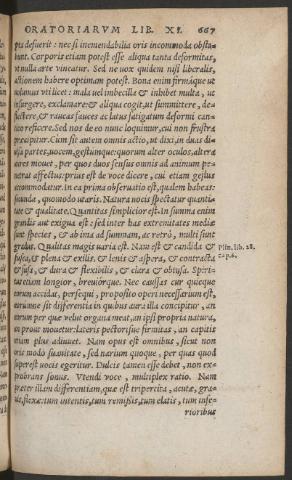 ORATORIARVM LIB. XI. 667
pis defuerit: nec si inemendabilia oris incommoda obsta-
bunt. Corporis etiam potest esse aliqua tanta deformitas,
ut nulla arte vincatur. Sed ne vox quidem nisi liberalis,
actionem habere optimam potest. Bona enim firmáque ut
volumus uti licet: mala uel imbecilla & inhibet multa, ut
insurgere, exclamare: & aliqua cogit, ut summittere, de-
flectere, & raucas fauces ac latus fatigatum deformi can-
tico reficere. Sed nos de eo nunc loquimur, cui non frustra
præcipitur. Cum sit autem omnis actio, ut dixi, in duas di-
uisa partes, uocem, gestumque: quorum alter oculos, altera
aures mouet, per quos duos sensus omnis ad animum pe-
netrat affectus: prius est de voce dicere, cui etiam gestus
accommodatur. In ea prima obseruatio est, qualem habeas:
secunda, quomodo utaris. Natura uocis spectatur quanti-
tate & qualitate. Quantitas simplicior est. In summa enim
grandis aut exigua est: sed inter has extremitates mediæ
sunt species, & ab ima ad summam, ac retrò, multi sunt
gradus. Qualitas magis uaria est. Nam est & candida &
Plin. lib. 28.
fusca, & plena & exilis, & lenis & aspera, & contracta
cap. 6.
& fusa, & dura & flexibilis, & clara & obtusa. Spiri-
tus etiam longior, breuiorque. Nec caussas cur quicque
eorum accidat, persequi, proposito operi necessarium est,
eorumne sit differentia in quibus aura illa concipitur, an
eorum per quæ velut organa meat, an ipsi propria natura,
an prout mouetur: lateris pectorisue firmitas, an capitis
etiam plus adiuuet. Nam opus est omnibus, sicut non
oris modò suauitate, sed narium quoque, per quas quod
superest uocis egeritur. Dulcis tamen esse debet, non ex-
probrans sonus. Vtendi voce, multiplex ratio. Nam
præter illam differentiam, quæ est tripertita, acutæ, gra-
uis, flexæ: tum intentis, tum remissis, tum elatis, tum infe-
rioribus